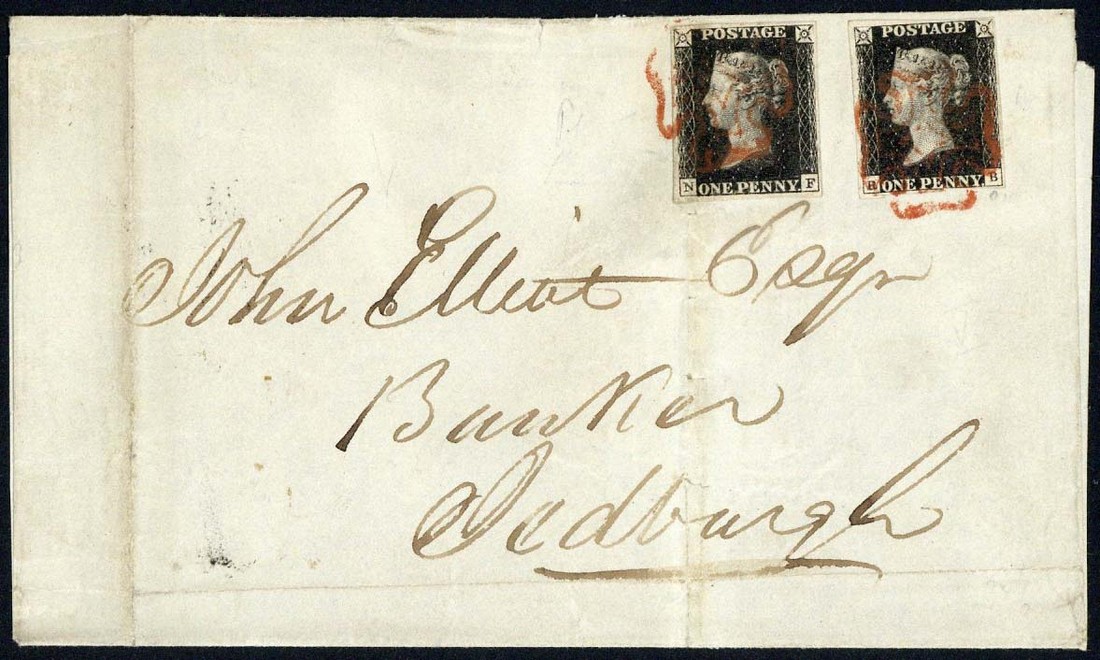 POSTAGE
N ONE PENNY. F
POSTAGE
ONE PENNY. B
John Elliot Esqr
Banker
Jedburgh